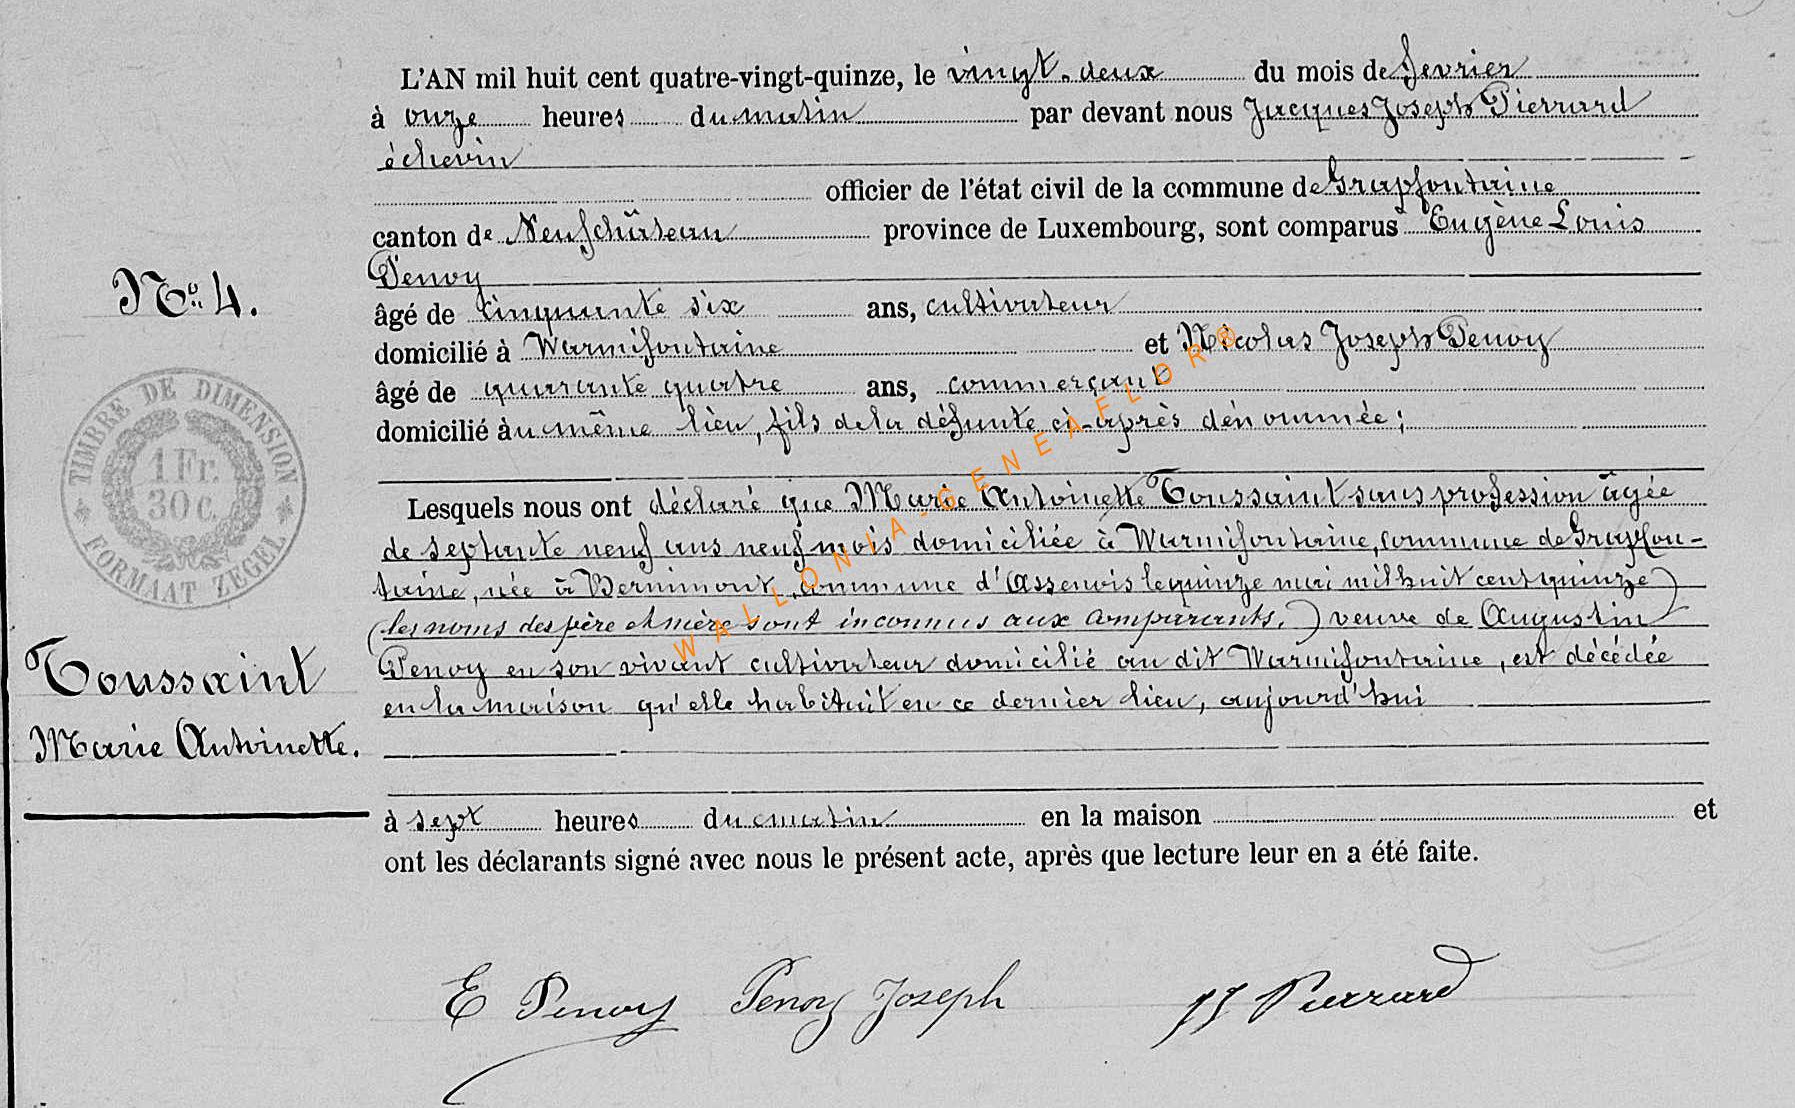 L'AN mil huit cent quatre-vingt-quinze, le vingt-deux du mois de fevrier
à onze heures du matin par devant nous Jacques Joseph Pierrard
échevin
officier de l'état civil de la commune de Grapfontaine
canton de Neufchâteau province de Luxembourg, sont comparus Eugène Louis
Penoy
N° 4.
âgé de cinquante six ans, cultivateur
domicilié à Warmifontaine et Nicolas Joseph Penoy
âgé de quarante quatre ans, commerçant
domicilié au même lieu, fils de la défunte ci-après dénommée;
TIMBRE DE DIMENSION
1 Fr.
30 c.
FORMAAT ZEGEL
Lesquels nous ont déclaré que Marie Antoinette Toussaint sans profession âgée
de septante neuf ans neuf mois domiciliée à Warmifontaine, commune de Grapfon-
taine, née à Bernimont, commune d'Assenois le quinze mai mil huit cent quinze
(les noms des père et mère sont inconnus aux comparants.) veuve de Augustin
Penoy en son vivant cultivateur domicilié au dit Warmifontaine, est décédée
en la maison qu'elle habitait en ce dernier lieu, aujourd'hui
Toussaint
Marie Antoinette.
à sept heures du matin en la maison et
ont les déclarants signé avec nous le présent acte, après que lecture leur en a été faite.
E Penoy Penoy Joseph JJ Pierrard
WALLONIA-GENEAFLOR®